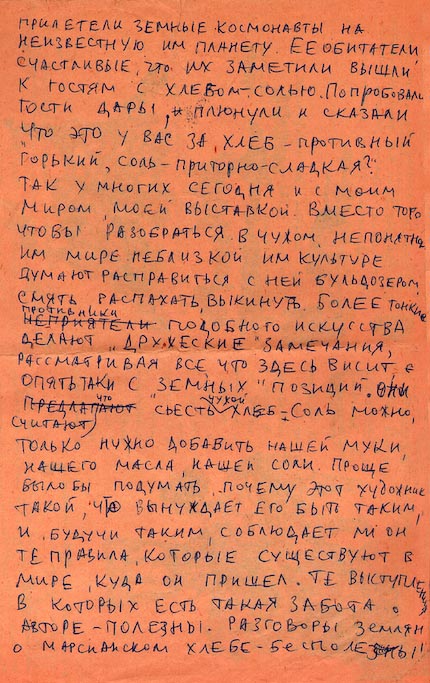 ПРИЛЕТЕЛИ ЗЕМНЫЕ КОСМОНАВТЫ НА
НЕИЗВЕСТНУЮ ИМ ПЛАНЕТУ. ЕЕ ОБИТАТЕЛИ
СЧАСТЛИВЫЕ, ЧТО ИХ ЗАМЕТИЛИ ВЫШЛИ
К ГОСТЯМ С ХЛЕБОМ-СОЛЬЮ. ПОПРОБОВАЛИ
ГОСТИ ДАРЫ, И ПЛЮНУЛИ И СКАЗАЛИ
"ЧТО ЭТО У ВАС ЗА ХЛЕБ-ПРОТИВНЫЙ
ГОРЬКИЙ, СОЛЬ-ПРИТОРНО-СЛАДКАЯ?"
ТАК У МНОГИХ СЕГОДНЯ И С МОИМ
МИРОМ, МОЕЙ ВЫСТАВКОЙ. ВМЕСТО ТОГО
ЧТОБЫ РАЗОБРАТЬСЯ В ЧУЖОМ, НЕПОНЯТНОМ
ИМ МИРЕ НЕБЛИЗКОЙ ИМ КУЛЬТУРЕ
ДУМАЮТ РАСПРАВИТЬСЯ С НЕЙ БУЛЬДОЗЕРОМ
СМЯТЬ РАСПАХАТЬ, ВЫКИНУТЬ. БОЛЕЕ ТОНКИЕ
ПРОТИВНИКИ
НЕПРИЯТЕЛИ ПОДОБНОГО ИСКУССТВА
ДЕЛАЮТ "ДРУЖЕСКИЕ" ЗАМЕЧАНИЯ,
РАССМАТРИВАЯ ВСЕ ЧТО ЗДЕСЬ ВИСИТ
ОПЯТЬ ТАКИ С ЗЕМНЫХ "ПОЗИЦИЙ". ОНИ
ЧТО ЧУЖОЙ
ПРЕДЛАГАЮТ СЬЕСТЬ ХЛЕБ-СОЛЬ МОЖНО,
СЧИТАЮТ
ТОЛЬКО НУЖНО ДОБАВИТЬ НАШЕЙ МУКИ,
НАШЕГО МАСЛА, НАШЕЙ СОЛИ. ПРОЩЕ
БЫЛО БЫ ПОДУМАТЬ, ПОЧЕМУ ЭТОТ ХУДОЖНИК
ТАКОЙ, ЧТО ВЫНУЖДАЕТ ЕГО БЫТЬ ТАКИМ,
И, БУДУЧИ ТАКИМ, СОБЛЮДАЕТ ЛИ ОН
ТЕ ПРАВИЛА, КОТОРЫЕ СУЩЕСТВУЮТ В
МИРЕ, КУДА ОН ПРИШЕЛ. ТЕ ВЫСТУПЛЕНИЯ
В КОТОРЫХ ЕСТЬ ТАКАЯ ЗАБОТА О
АВТОРЕ-ПОЛЕЗНЫ. РАЗГОВОРЫ ЗЕМЛЯН
О МАРСИАНСКОМ ХЛЕБЕ-БЕСПОЛЕЗНЫ!